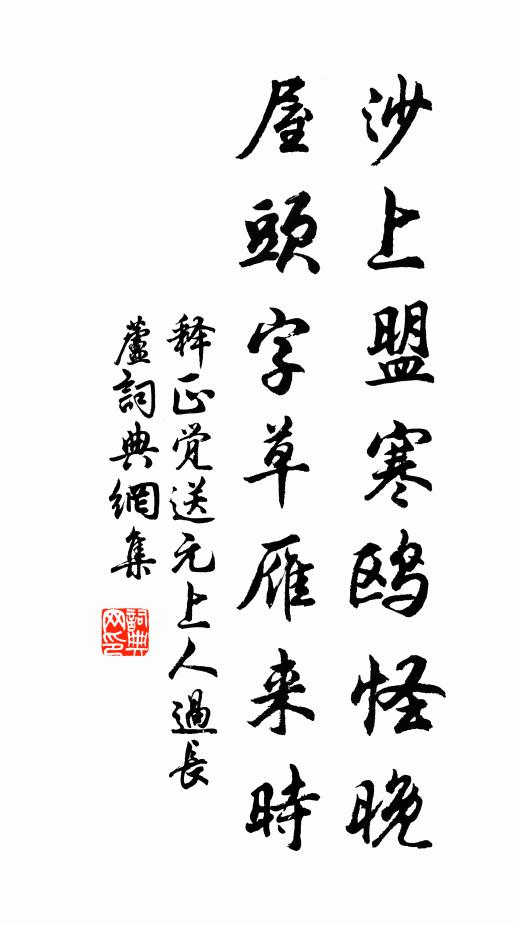 沙上盟寒鸥怪晚
屋頭字草雁来時
释正觉送元上人過長
蘆詞典網集
詞典网印